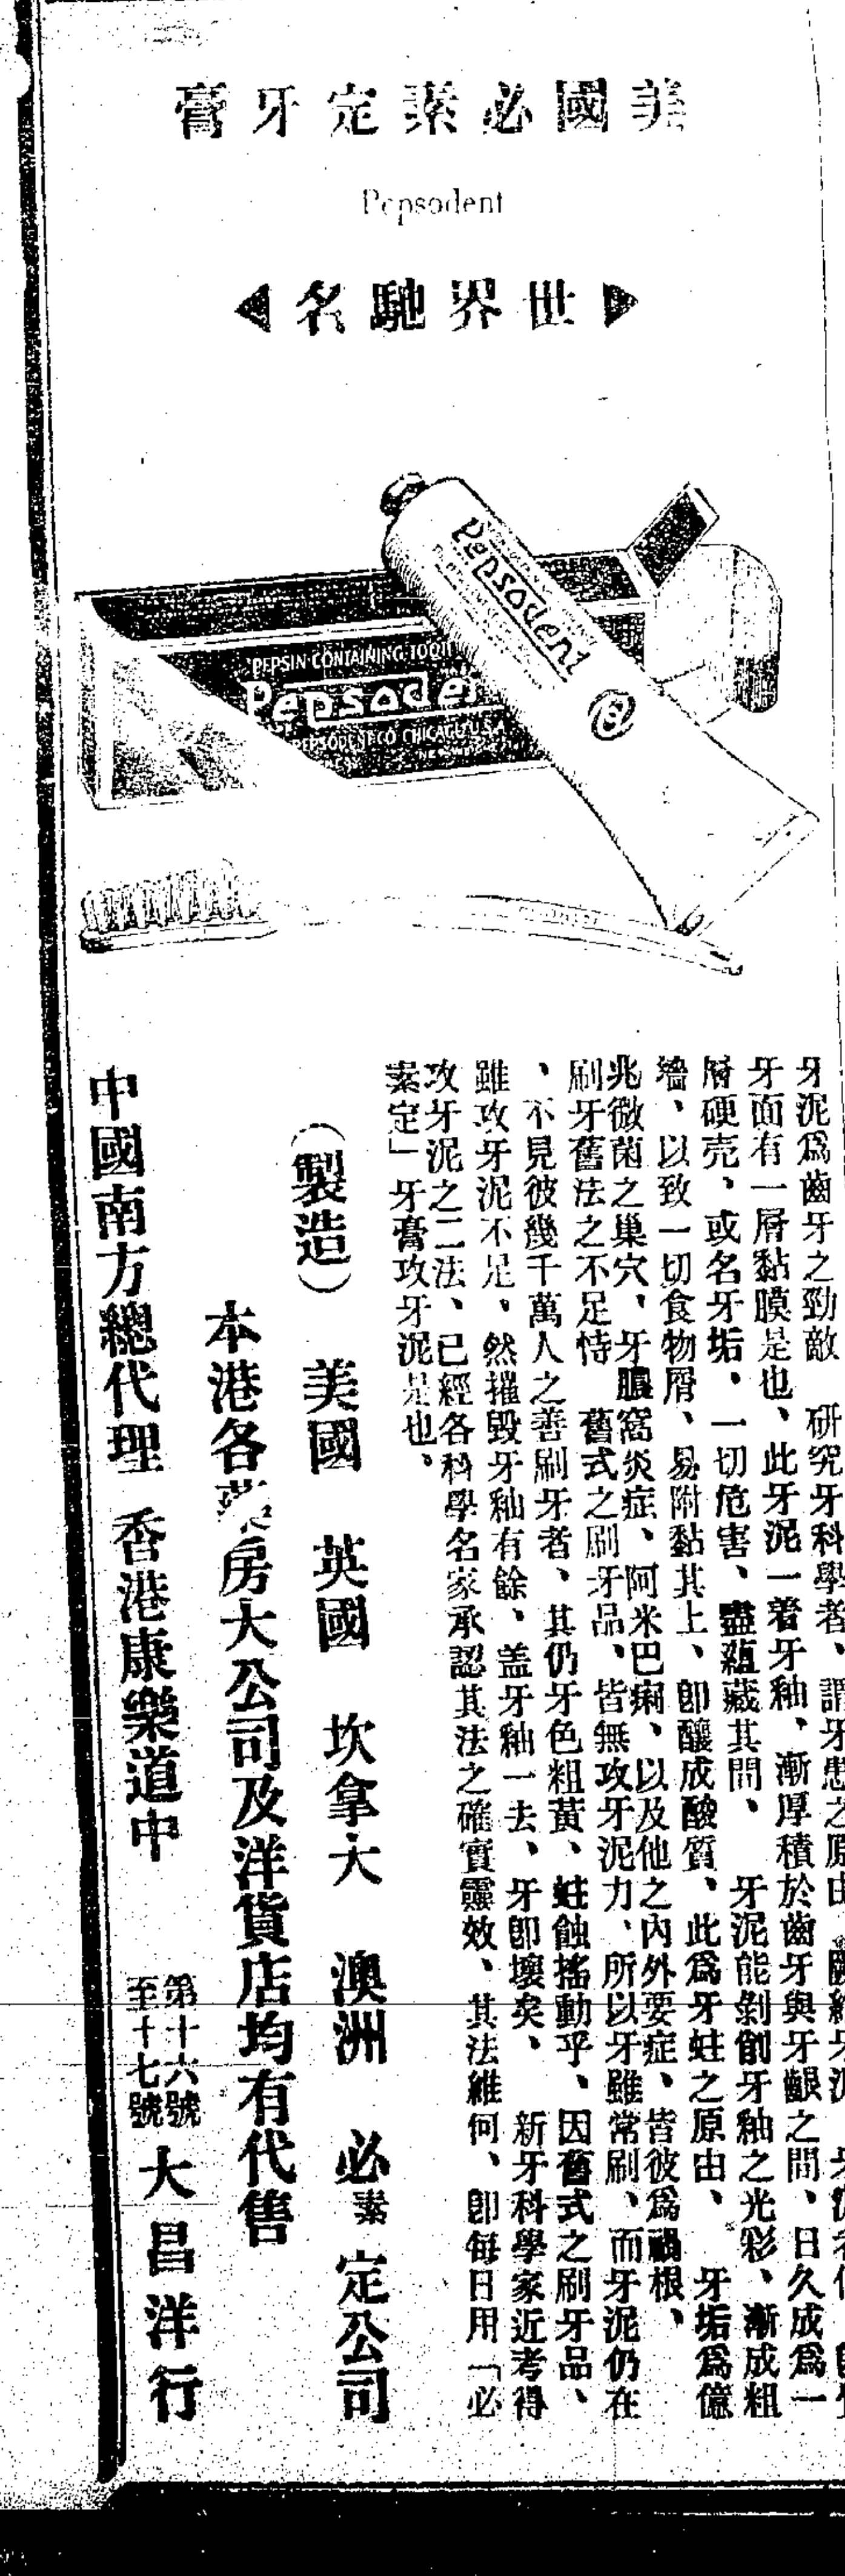 美國必素定牙膏
Pepsodent
世界馳名
Pepsodent
PEPSIN CONTAINING TOOT
Pepsode
PEPSODENT CO CHICAGO U.S.A.
牙泥爲齒牙之勁敵 研究牙科學者、謂牙患之原由
牙面有一層黏膜是也、此牙泥一着牙釉、漸厚積於齒牙與牙齦之間、日久成爲一
層硬壳、或名牙垢、一切危害、盡蘊藏其間、 牙泥能剝削牙釉之光彩、漸成粗
墻、以致一切食物屑、易附黏其上、卽釀成酸質、此爲牙蛀之原由、 牙垢爲億
兆微菌之巢穴、牙齦窩炎症、阿米巴痢、以及他之內外要症、皆彼爲禍根、
刷牙舊法之不足恃 舊式之刷牙品、皆無攻牙泥力、所以牙雖常刷、而牙泥仍在
、不見彼幾千萬人之善刷牙者、其仍牙色粗黃、蛀蝕搖動乎、因舊式之刷牙品、
雖攻牙泥不足、然摧毀牙釉有餘、盖牙釉一去、牙卽壞矣、 新牙科學家近考得
攻牙泥之二法、已經各科學名家承認其法之確實靈效、其法維何、卽每日用「必
素定」牙膏攻牙泥是也、
（製造） 美國 英國 坎拿大 澳洲 必素定公司
本港各藥房大公司及洋貨店均有代售
中國南方總代理 香港康樂道中 第十六號至十七號 大昌洋行